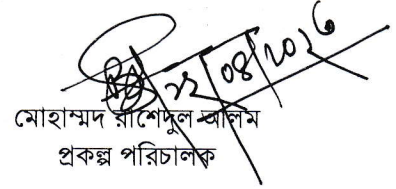 ২২/০৪/২০২৬
মোহাম্মদ রাশেদুল আলম
প্রকল্প পরিচালক